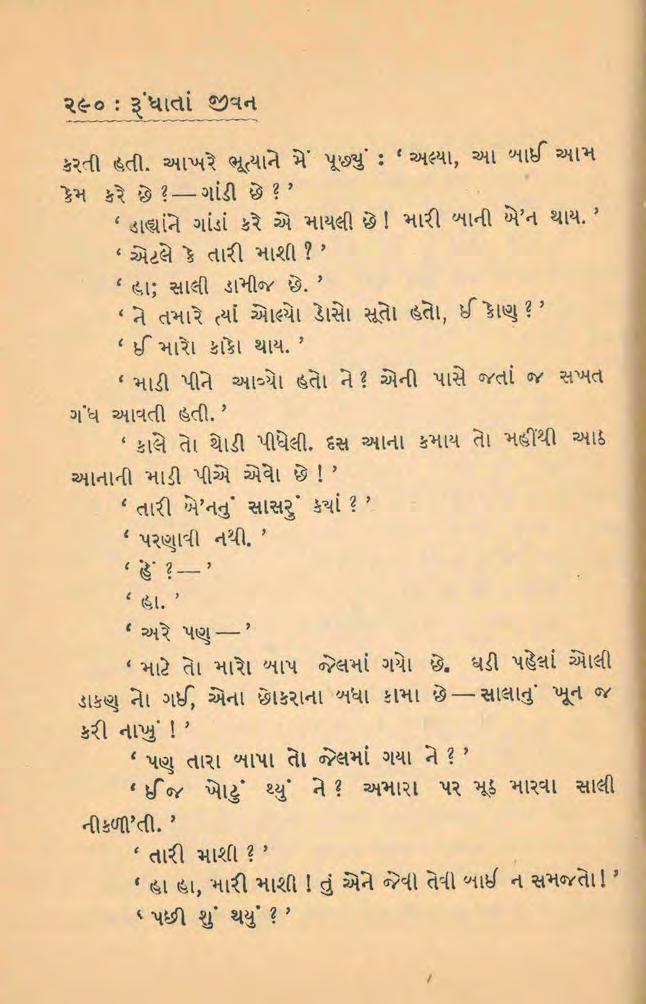 ૨૯૦ : રૂંધાતાં જીવન
કરતી હતી. આખરે ભૂત્યાને મેં પૂછ્યું : ‘ અલ્યા, આ બાઈ આમ
કેમ કરે છે ?—ગાંડી છે ?’
‘ ડાહ્યાંને ગાંડાં કરે એ માયલી છે! મારી બાની બે’ન થાય. ’
‘ એટલે કે તારી માશી ? ’
‘ હા; સાલી ડામીજ છે. ’
‘ ને તમારે ત્યાં ઓલ્યો ડોસો સૂતો હતો, ઈ કોણ ? ’
‘ ઈ મારો કાકો થાય. ’
‘ માડી પીને આવ્યો હતો ને? એની પાસે જતાં જ સખત
ગંધ આવતી હતી. ’
‘ કાલે તો થોડી પીધેલી. દસ આના કમાય તો મહીંથી આઠ
આનાની માડી પીએ એવો છે ! ’
‘ તારી બે’નનું સાસરું ક્યાં ? ’
‘ પરણાવી નથી. ’
‘ હેં ?— ’
‘ હા. ’
‘ અરે પણ — ’
‘ માટે તો મારો બાપ જેલમાં ગયો છે. ઘડી પહેલાં ઓલી
ડાકણ નો ગઈ, એના છોકરાના બધા કામા છે — સાલાનું ખૂન જ
કરી નાખું ! ’
‘ પણ તારા બાપા તો જેલમાં ગયા ને ? ’
‘ ઈજ ખોટું થ્યું ને ? અમારા પર મૂઠ મારવા સાલી
નીકળી’તી. ’
‘ તારી માશી ? ’
‘ હા હા, મારી માશી ! તું એને જેવી તેવી બાઈ ન સમજતો! ’
‘ પછી શું થયું ? ’